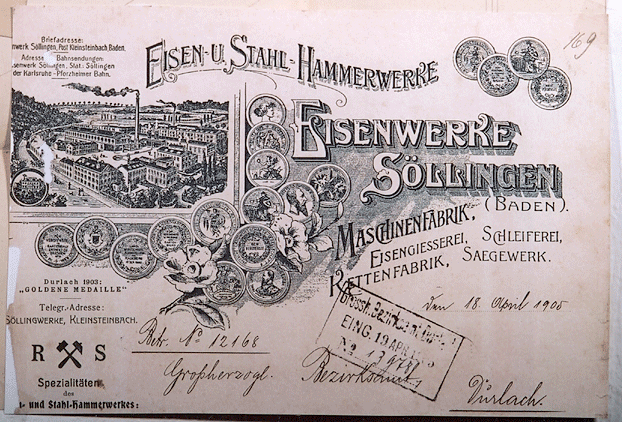 Briefadresse:
werk Söllingen, Post Kleinsteinbach, Baden.
Adresse Bahnsendungen:
senwerk Söllingen, Stat: Söllingen
der Karlsruhe-Pforzheimer Bahn.
169
EISEN-U. STAHL-HAMMERWERKE
EISENWERKE
SÖLLINGEN
(BADEN).
MASCHINENFABRIK,
EISENGIESSEREI, SCHLEIFEREI,
KETTENFABRIK, SAEGEWERK.
Durlach 1903:
„GOLDENE MEDAILLE"
Telegr.-Adresse:
SÖLLINGWERKE, KLEINSTEINBACH.
R S
Spezialitäten
des
und Stahl-Hammerwerkes:
den 18. April 1905
Grossh. Bezirksamt
EING. 19. APR.
No
Betr. No 12168
Großherzogl. Bezirksamt
Durlach.